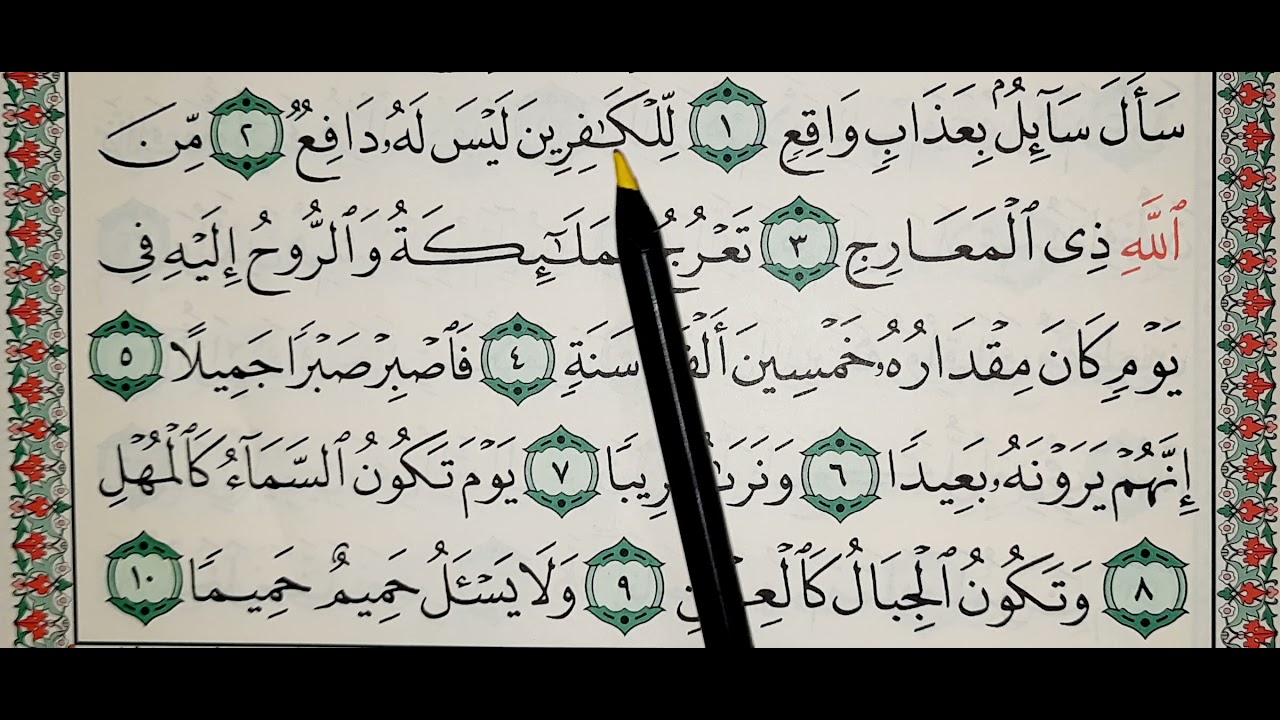 سَأَلَ سَآئِلُۢ بِعَذَابٖ وَاقِعٖ ١ لِّلۡكَٰفِرِينَ لَيۡسَ لَهُۥ دَافِعٞ ٢ مِّنَ
ٱللَّهِ ذِي ٱلۡمَعَارِجِ ٣ تَعۡرُجُ وَٱلرُّوحُ إِلَيۡهِ فِي
يَوۡمٖ كَانَ مِقۡدَارُهُۥ خَمۡسِينَ أَلۡفَ سَنَةٖ ٤ فَٱصۡبِرۡ صَبۡرٗا جَمِيلًا ٥
إِنَّهُمۡ يَرَوۡنَهُۥ بَعِيدٗا ٦ يَوۡمَ تَكُونُ ٱلسَّمَآءُ كَٱلۡمُهۡلِ ٧
٨ وَتَكُونُ ٱلۡجِبَالُ كَٱلۡعِهۡنِ ٩ وَلَا يَسۡـَٔلُ حَمِيمٌ حَمِيمٗا ١٠